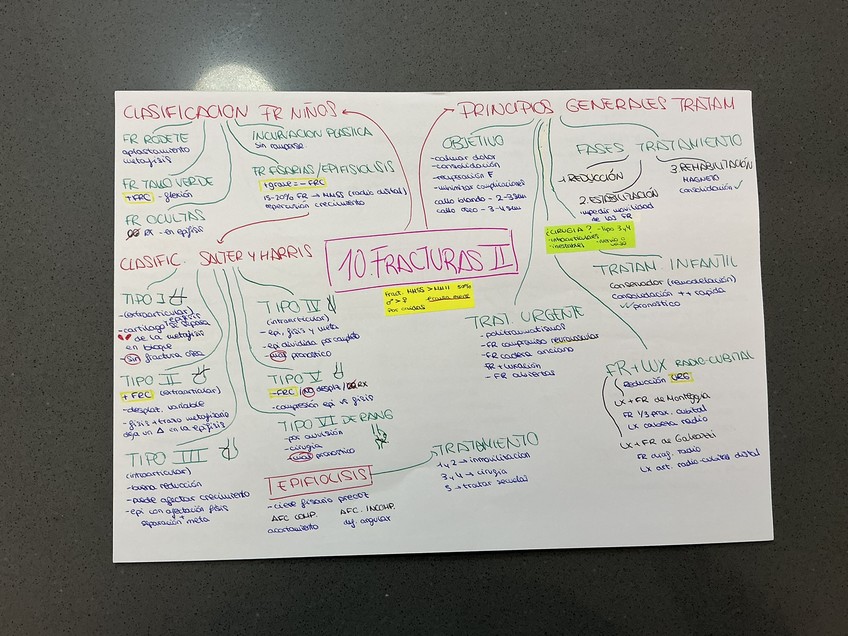 CLASIFICACION FR NIÑOS
FR RODETE
aplastamiento
metafisis
FR TALLO VERDE
+FRC - flexión
FR OCULTAS
RX - en epífisis
INCURVACION PLASTICA
sin romperse
FR FISARIAS/EPIFISIOLISIS
+grave = - FRC
15-20% FR → MMSS (radio distal)
repercusión crecimiento
CLASIFIC. SALTER Y HARRIS
TIPO I
(extraarticular)
-cartílago epífisis se separa
de la metafisis
en bloque
-sin fractura ósea
TIPO II
+ FRC (extraarticular)
-desplaz. variable
-fisis + trazo metafisario
deja un Δ en la epífisis
TIPO III
(intraarticular)
-buena reducción
-puede afectar crecimiento
-epi con afectación fisis
separación + meta
TIPO IV
(intraarticular)
-epi, fisis y meta
-epi dividida por completo
-mal pronostico
TIPO V
-FRC / NO desplaz / RX
-compresión epi vs fisis
TIPO VI DE RANG
-por avulsión
-cirugía
-mal pronostico
EPIFIOLISIS
-cierre fisario precoz
AFC COMP.
acortamiento
AFC. INCOMP.
df. angular
TRATAMIENTO
1 y 2 → inmovilizacion
3 y 4 → cirugía
5 → tratar secuelas
10. FRACTURAS II
fract. MMSS > MMII 50%
♂ > ♀
por caidas
PRINCIPIOS GENERALES TRATAM
OBJETIVO
-calmar dolor
-consolidación
-recuperación F
-minimizar complicaciones
callo blando - 2-3 sem
callo óseo - 3-4 sem
FASES TRATAMIENTO
1 REDUCCIÓN
2. ESTABILIZACIÓN
impedir movilidad
de las FR
3 REHABILITACIÓN
MAGNETO
consolidación ✓
¿CIRUGIA? - tipo 3 y 4
-intraarticulares
-inestables
TRATAM. INFANTIL
Conservador (remodelación)
consolidación ++ rapida
✓ pronóstico
TRAT. URGENTE
-politraumatismos
-FR compromiso neurovascular
-FR cadera anciano
-FR + luxación
-FR abiertas
FR + LUX RADIO-CUBITAL
Reducción URG
LX + FR de Monteggia
FR 1/3 prox. cubital
LX cabeza radio
LX + FR de Galeazzi
FR diaf. radio
LX art. radio-cubital distal